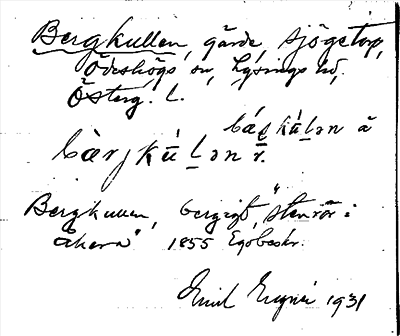 Bergkullen, gärde, Sjögetorp,
Ödeshögs sn, Lysings hd,
Österg. L.
bæ̀ṣkúl̠ən ä
bæ̀rjkúl̠ən r.
Bergkullen, bergigt, "stenrör i
åkern" 1855 Egobeskr.
Emil 1931